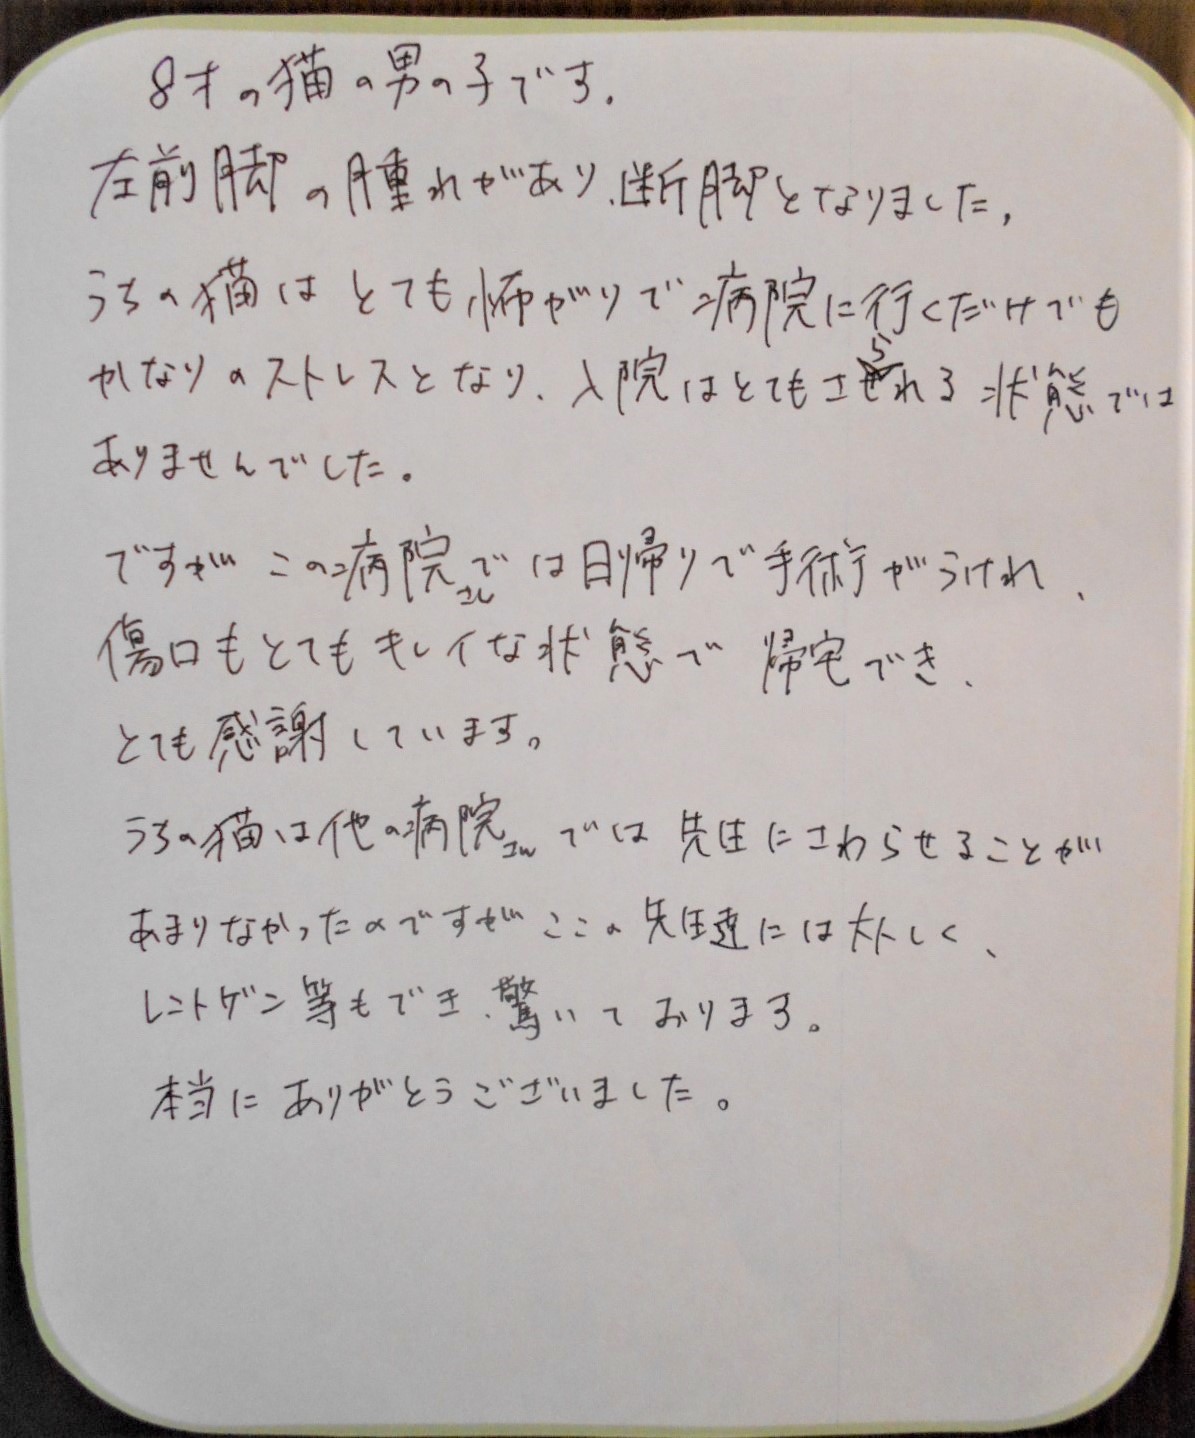 8才の猫の男の子です.
左前脚の腫れがあり、断脚となりました,
うちの猫はとても怖がりで病院に行くだけでも
かなりのストレスとなり、入院はとてもさられる状態では
ありませんでした。
ですがこの病院さんでは日帰りで手術がうけれ、
傷口もとてもキレイな状態で帰宅でき、
とても感謝しています。
うちの猫は他の病院さんでは先生にさわらせることが
あまりなかったのですがここの先生達には大人しく、
レントゲン等もでき、驚いております。
本当にありがとうございました。